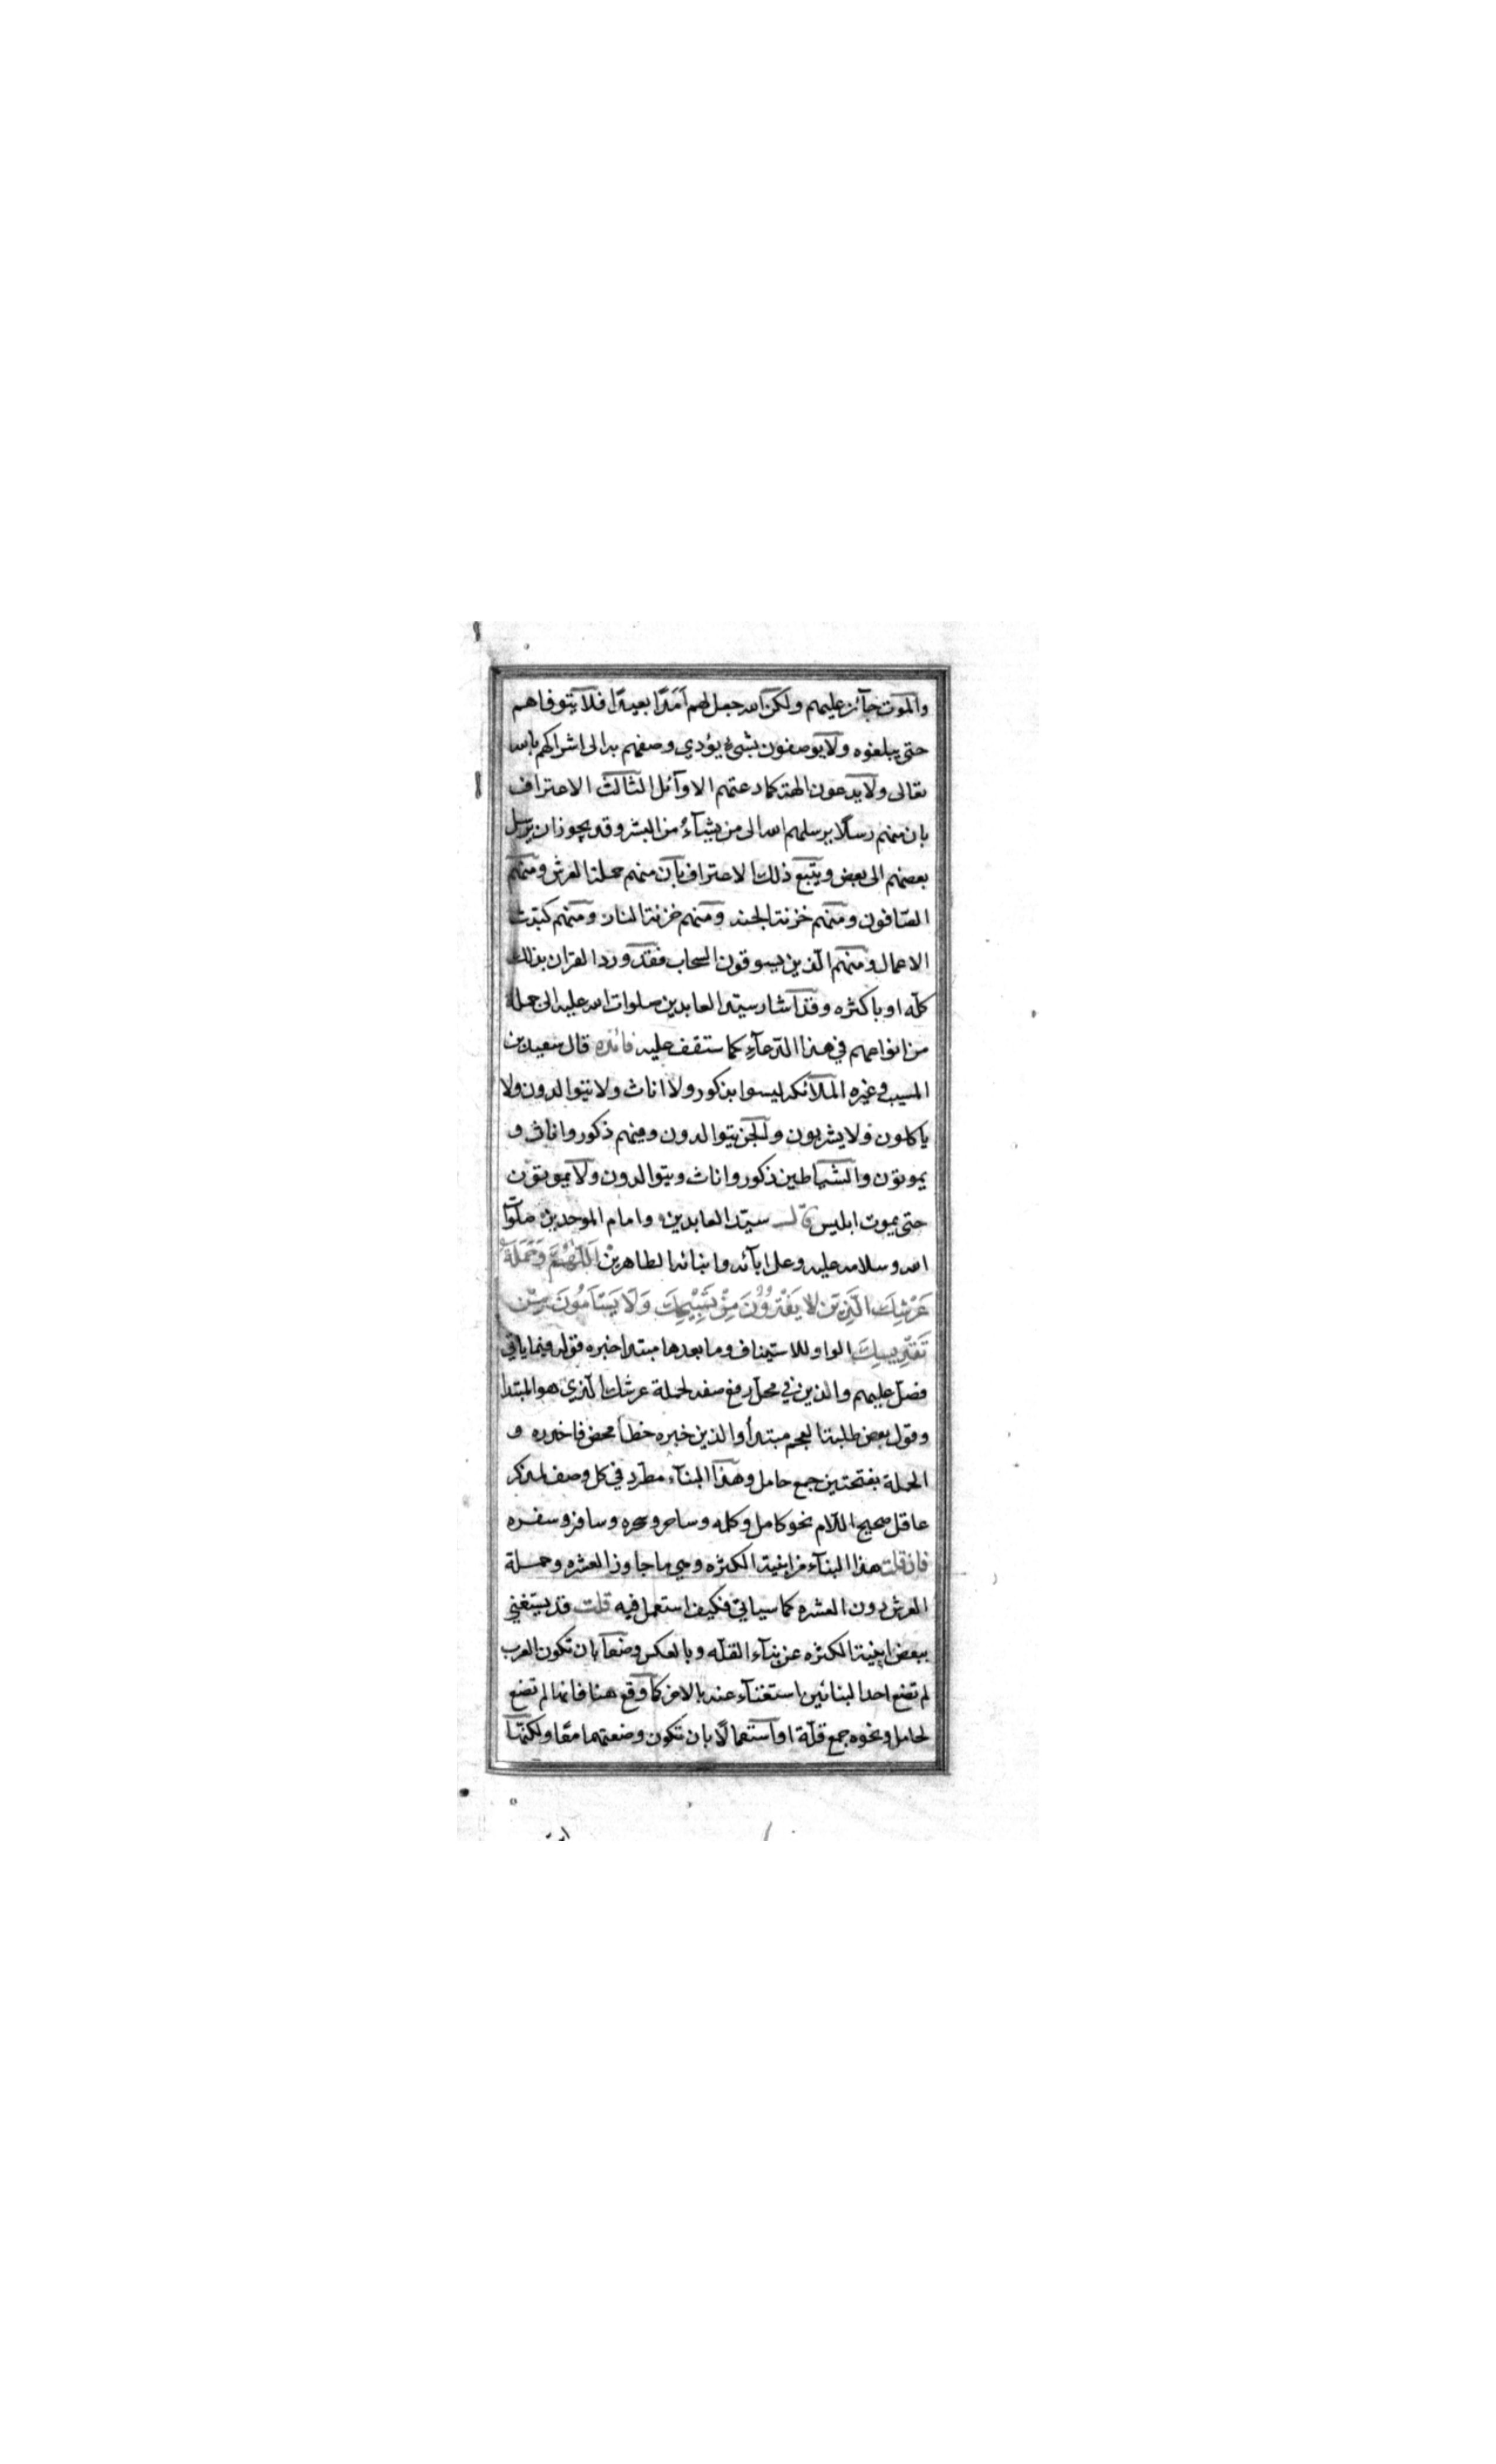 والموت جآئز عليهم ولكن الله جعل لهم امدًا بعيدًا فلا يتوفاهم
حتى يبلغوه ولا يوصفون بشئ يؤدي وصفهم به الى اشراكهم بالله
تعالى ولا يدعون الهة كما دعتهم الاوآئل الثالث الاعتراف
بان منهم رسلًا يرسلهم الله الى من يشآء من البشر وقد يجوز ان يرسل
بعضهم الى بعض ويتبع ذلك الاعتراف بان منهم حملة العرش ومنهم
الصافون ومنهم خزنة الجنه ومنهم خزنة النار ومنهم كتبة
الاعمال ومنهم الذين يسوقون السحاب فقد ورد القران بذلك
كله او باكثره وقد اشار سيد العابدين صلوات الله عليه الى جملة
من انواعهم في هذا الدعآء كما ستقف عليه فائده قال سعيد بن
المسيب وغيره الملآئكه ليسوا بذكور ولا اناث ولا يتوالدون ولا
ياكلون ولا يشربون والجن يتوالدون ومنهم ذكور واناث و
يموتون والشياطين ذكور واناث ويتوالدون ولا يموتون
حتى يموت ابليس قال سيد العابدين وامام الموحدين صلوات
الله وسلامه عليه وعلى ابآئه وابنائه الطاهرين اَللّهُمَّ وَحَمَلَةُ
عَرْشِكَ الَّذِيَن لا يَفْتُروُنَ مِنْ تَسْبِيْحِكَ وَلَا يَسْاَمُونَ مِنْ
تَقْدِيسِكَ الواو للاستيناف وما بعدها مبتدا خبره قوله فيما ياتي
فصل عليهم والذين في محل رفع صفه لحملة عرشك الذي هو المبتدا
وقول بعض طلبة العجم مبتدأ والذين خبره خطأ محض فاحذره و
الحملة بفتحتين جمع حامل وهذا البنآء مطرد في كل وصف لمذكر
عاقل صحيح اللام نحو كامل وكمله وساحر وسحره وسافر وسفره
فان قلت هذا البنآء من ابنية الكثره وهي ما جاوز العشره وحملة
العرش دون العشره كما سياتي فكيف استعمل فيه قلت قد يستغني
ببعض ابنية الكثره عن بنآء القله وبالعكس وضعًا بان تكون العرب
لم تضع احد البنائين استغنآء عنه بالاخر كما وقع هنا فانها لم تضع
لحامل ونحوه جمع قلة او استعمالًا بان تكون وضعتهما معًا ولكنها